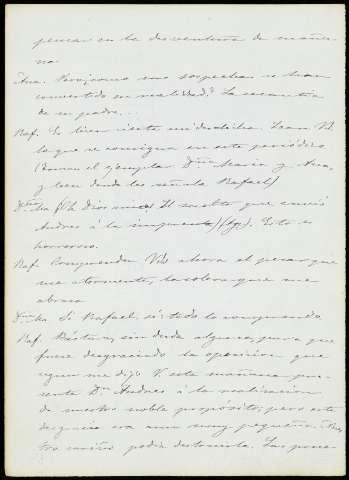 pensar en la desventura de maña-
na.
Ana. Pero, como mis sospechas se han
convertido en realidad? La cesantía
de mi padre...
Raf. Es bien cierta mi desdicha. Lean Vds.
lo que se consigna en este periódico
(Toman el ejemplar Dña. María y Ana,
y leen donde les señala Rafael)
Dña. Ma. ¡Oh Dios mio! El suelto que envió
Andres á la imprenta! (Ap). Esto es
horroroso.
Raf. Comprenden Vds ahora el pesar que
me atormenta, la cólera que me
abrasa
Dña. Ma. Si Rafael, si; todo lo comprendo.
Raf. Bástara, sin duda alguna, para que
fuese desgraciado la oposicion que
segun me dijo V. esta mañana pre-
senta Dn. Andres á la realizacion
de nuestro noble propósito; pero esta
desgracia era aun muy pequeña. Nues-
tro cariño podia destruirla. Las pone-